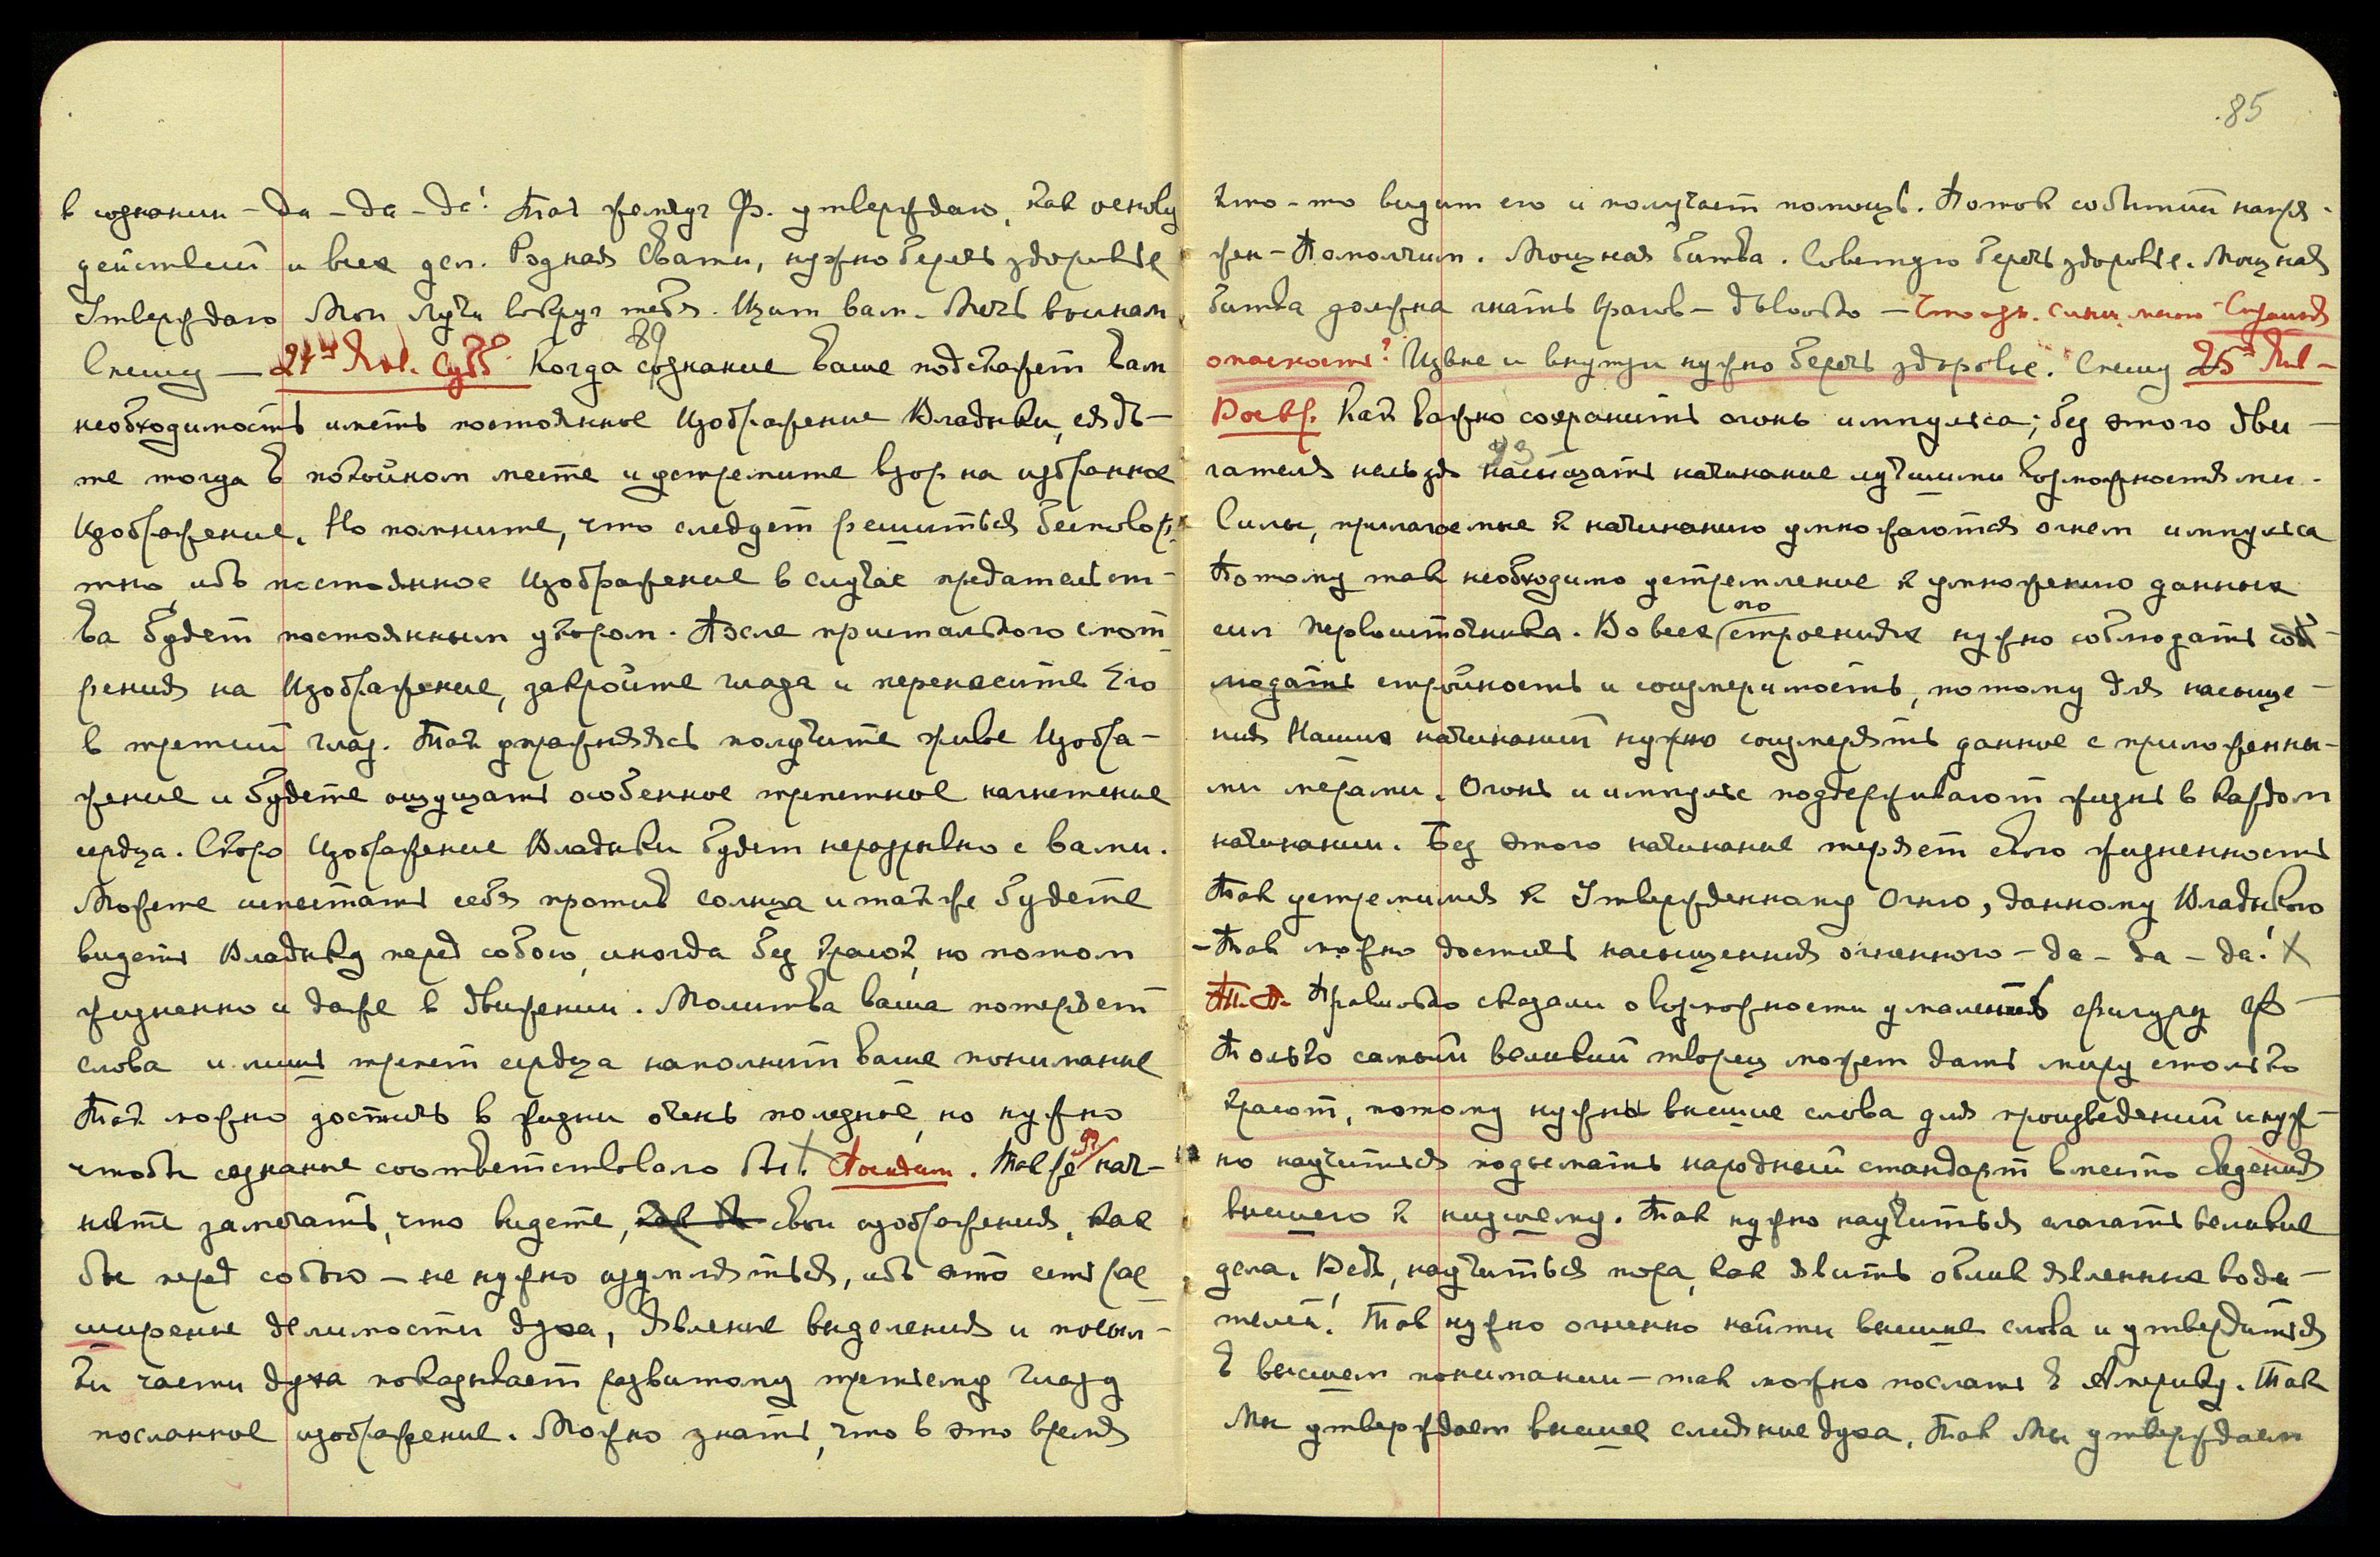 в сознании – да – да – да! Так жемчуг Ф. утверждаю, как основу
действий и всех дел. Родная Свати, нужно беречь здоровье
Утверждаю Мои Лучи вокруг тебя. Щит вам. Меч воинам
Спешу – 24ое Янв. Субб. Когда сознание ваше подскажет вам
89
необходимость иметь постоянное Изображение Владыки, сядь-
те тогда в покойном месте и устремите взор на избранное
Изображение. Но помните, что следует решиться бесповор-
тно, ибо постоянное Изображение в случае предательст-
ва будет постоянным укором. После пристального смот-
рения на Изображение, закройте глаза и перенесите Его
в третий глаз. Так упражняясь получите живое Изобра-
жение и будете ощущать особенное трепетное нагнетение
сердца. Скоро Изображение Владыки будет неразрывно с вами.
Можете испытать себя против солнца и также будете
видеть Владыку перед собою, иногда без красок, но потом
жизненно и даже в движении. Молитва ваша потеряет
слова и лишь трепет сердца наполнит ваше понимание
Так можно достичь в жизни очень полезное, но нужно
чтобы сознание соответствовало бы! Посидим. Также нач-
93
нёте замечать, что видете, как бы свои изображения, как
бы перед собою – не нужно изумляться, ибо это есть рас
ширение делимости духа, явление выделения и посыл-
ки части духа показывает развитому третьему глазу
посланное изображение. Можно знать, что в это время
85
кто-то видит его и получает помощь. Поток событий напря-
жен – Помолчим. Мощная битва. Советую беречь здоровье. Мощная
битва должна гнать врагов – дьвольво – Страшная
опасность? Извне и внутри нужно беречь здоровье. Спешу 25ое Янв –
Воскр. Как важно сохранить огонь импульса; без этого дви –
93
гателя нельзя насыщать начинание лучшими возможностями.
Силы, прилагаемые к начинанию умножаются огнем импульса
Потому так необходимо устремление к умножению данных
сил Первоисточника. Во всех строениях нужно соблюдать соб-
по
людать стройность и соизмеримость, потому для насыще-
ния Наших начинаний нужно соизмерять данное с приложенны-
ми мерами. Огонь и импульс поддерживают жизнь в каждом
начинании. Без этого начинание теряет свою жизненность
Так устремимся к Утвержденному Огню, данному Владыкою
– Так можно достичь насыщения огненного – да – да – да! X
Т.П. Правильно сказали о возможности умаления фигуру Ф –
Только самый великий творец может дать миру столько
красот, потому нужны высшие слова для произведений и нуж-
но научиться подымать народный стандарт вместо сведения
высшего к низшему. Так нужно научиться слагать великие
дела. Ведь, научиться пора, как явить облик явленных води-
телей! Так нужно огненно найти высшие слова и утвердиться
в высшем понимании – так можно послать в Америку. Так
Мы утверждаем высшее слияние духа, Так Мы утверждаем